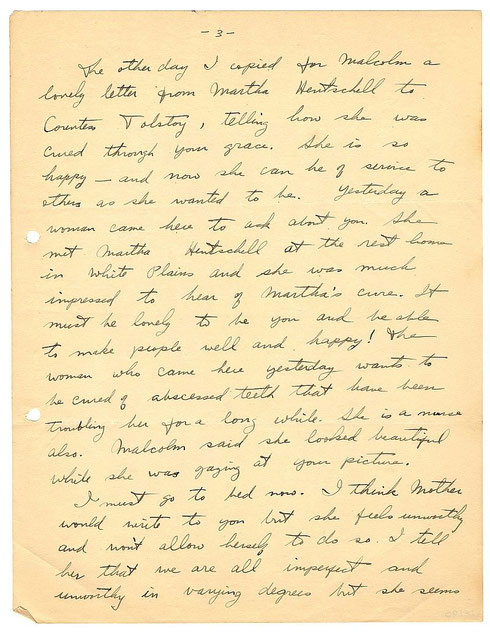 -3-
The other day I copied for Malcolm a
lovely letter from Martha Hentschell to
Countess Tolstoy, telling how she was
cured through your grace. She is so
happy — and now she can be of service to
others as she wanted to be. Yesterday a
woman came here to ask about you. She
met Martha Hentschell at the rest home
in White Plains and she was much
impressed to hear of Martha's cure. It
must be lovely to be you and be able
to make people well and happy! The
woman who came here yesterday wants to
be cured of abscessed teeth that have been
troubling her for a long while. She is a nurse
also. Malcolm said she looked beautiful
while she was gazing at your picture.
I must go to bed now. I think Mother
would write to you but she feels unworthy
and won't allow herself to do so. I tell
her that we are all imperfect and
unworthy in varying degrees but she seems